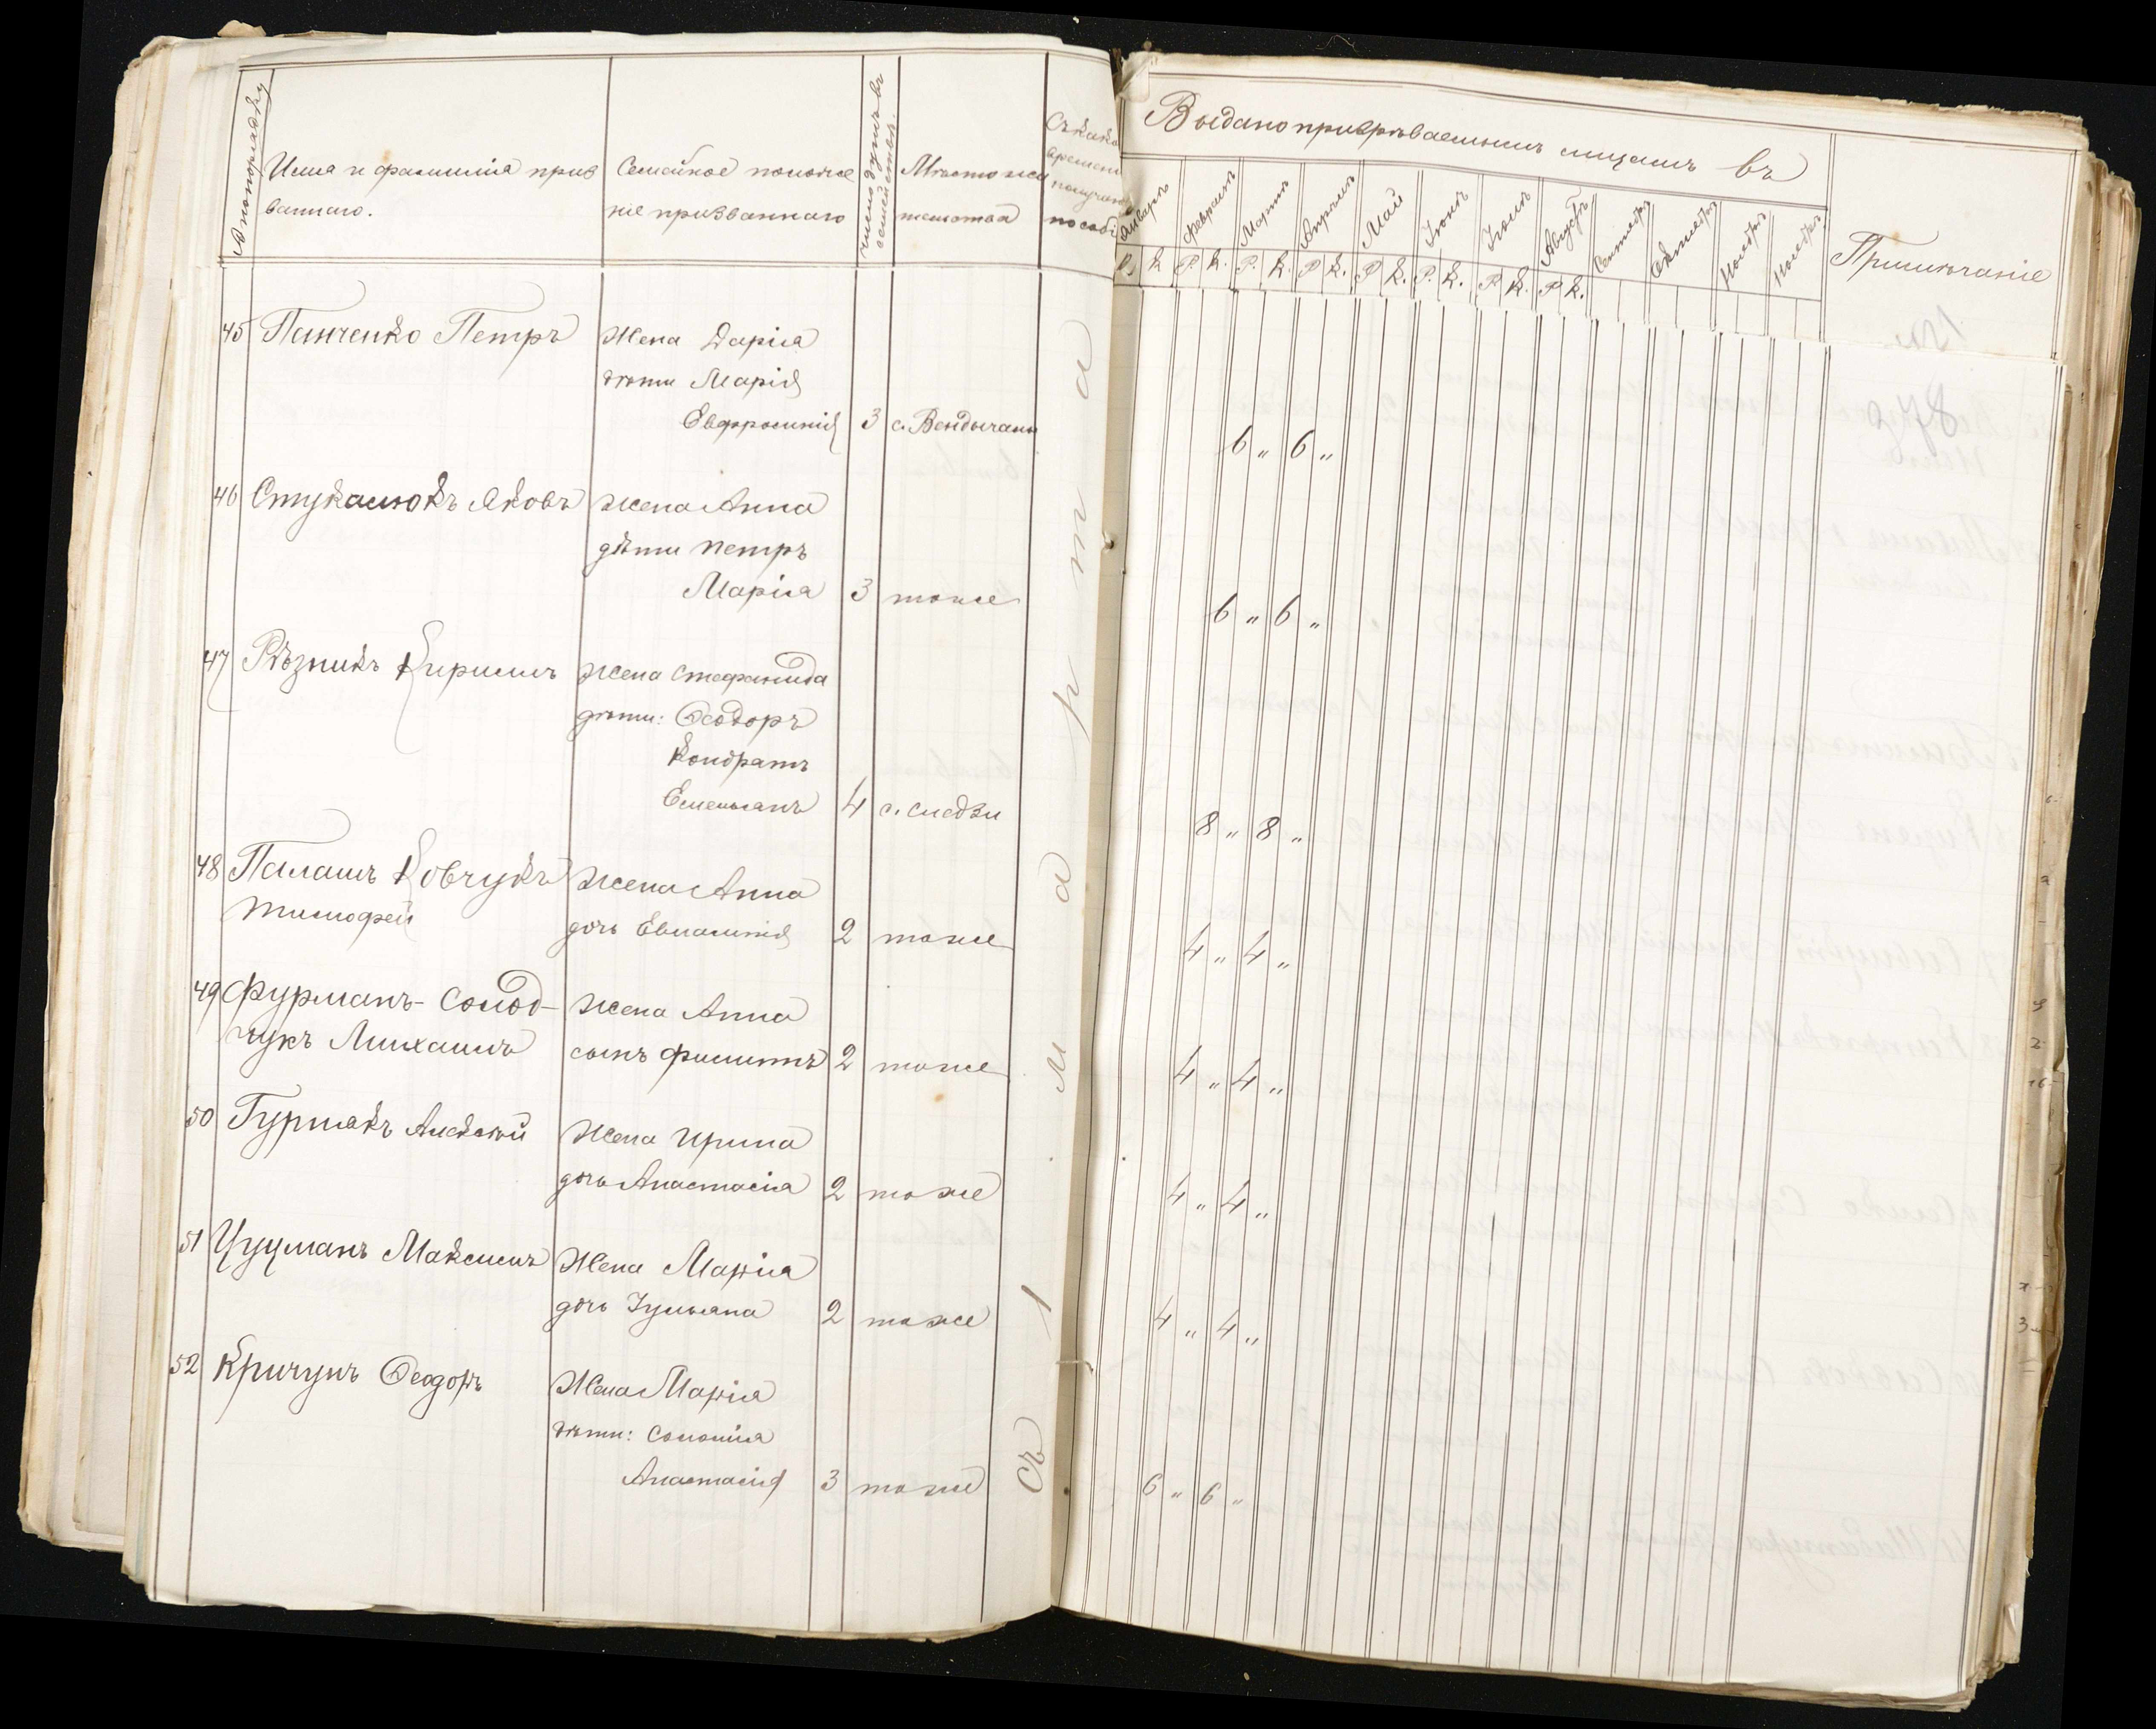 № по порядку
Имя и фамилія приз
ваннаго.
Семейное положе
ніе призваннаго
число душъ въ
семействѣ.
Мѣсто жи
тельства
Съ како
времени
получает
пособі
Выдано призрѣваемымъ лицамъ въ
Январѣ
Февралѣ
Мартѣ
Апрѣлѣ
Май
Іюнѣ
Іюлѣ
Августѣ
Сентябрѣ
Октябрѣ
Ноябрѣ
Ноябрѣ
Примѣчаніе
Р. К. Р. К. Р. К. Р К. Р К. Р. К. Р К. Р К.
45 Панченко Петръ Жена Дарія
дѣти Марія
Евфросинія 3 с. Вендычаны 6 „ 6 „
46 Стукалюкъ Яковъ жена Анна
дѣти Петръ
Марія 3 тоже 6 „ 6 „
47 Рѣзникъ Кирилъ жена Стефанида
дѣти: Ѳеодоръ
Кондратъ
Емельянъ 4 с. Следзи 8 „ 8 „
48 Палашъ Ковчукъ жена Анна
Тимофей дочь Евлампія 2 тоже 4 „ 4 „
49 Фурманъ-Солод- жена Анна
чукъ Михаилъ сынъ Филиппъ 2 тоже 4 „ 4 „
50 Гурпакъ Алексѣй Жена Ирина
дочь Анастасія 2 тоже 4 „ 4 „
51 Цуцманъ Максимъ Жена Марія
дочь Іульяна 2 тоже 4 „ 4 „
52 Кричунъ Ѳеодоръ Жена Марія
дѣти: Соломія
Анастасія 3 тоже 6 „ 6 „
Съ 1 марта